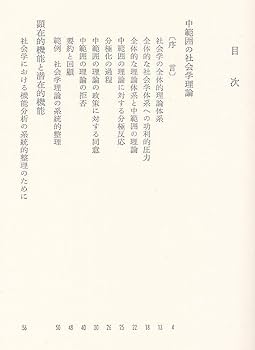 目次
中範囲の社会学理論
〔序 言〕 4
社会学の全体的理論体系 13
全体的な社会学体系への功利的圧力 18
全体的な理論体系と中範囲の理論 22
中範囲の理論に対する分極反応 25
分極化の過程 26
中範囲の理論の政策に対する同意 30
中範囲の理論の拒否 40
要約と回顧 48
範例 社会学理論の系統的整理 50
顕在的機能と潜在的機能
社会学における機能分析の系統的整理のために 56